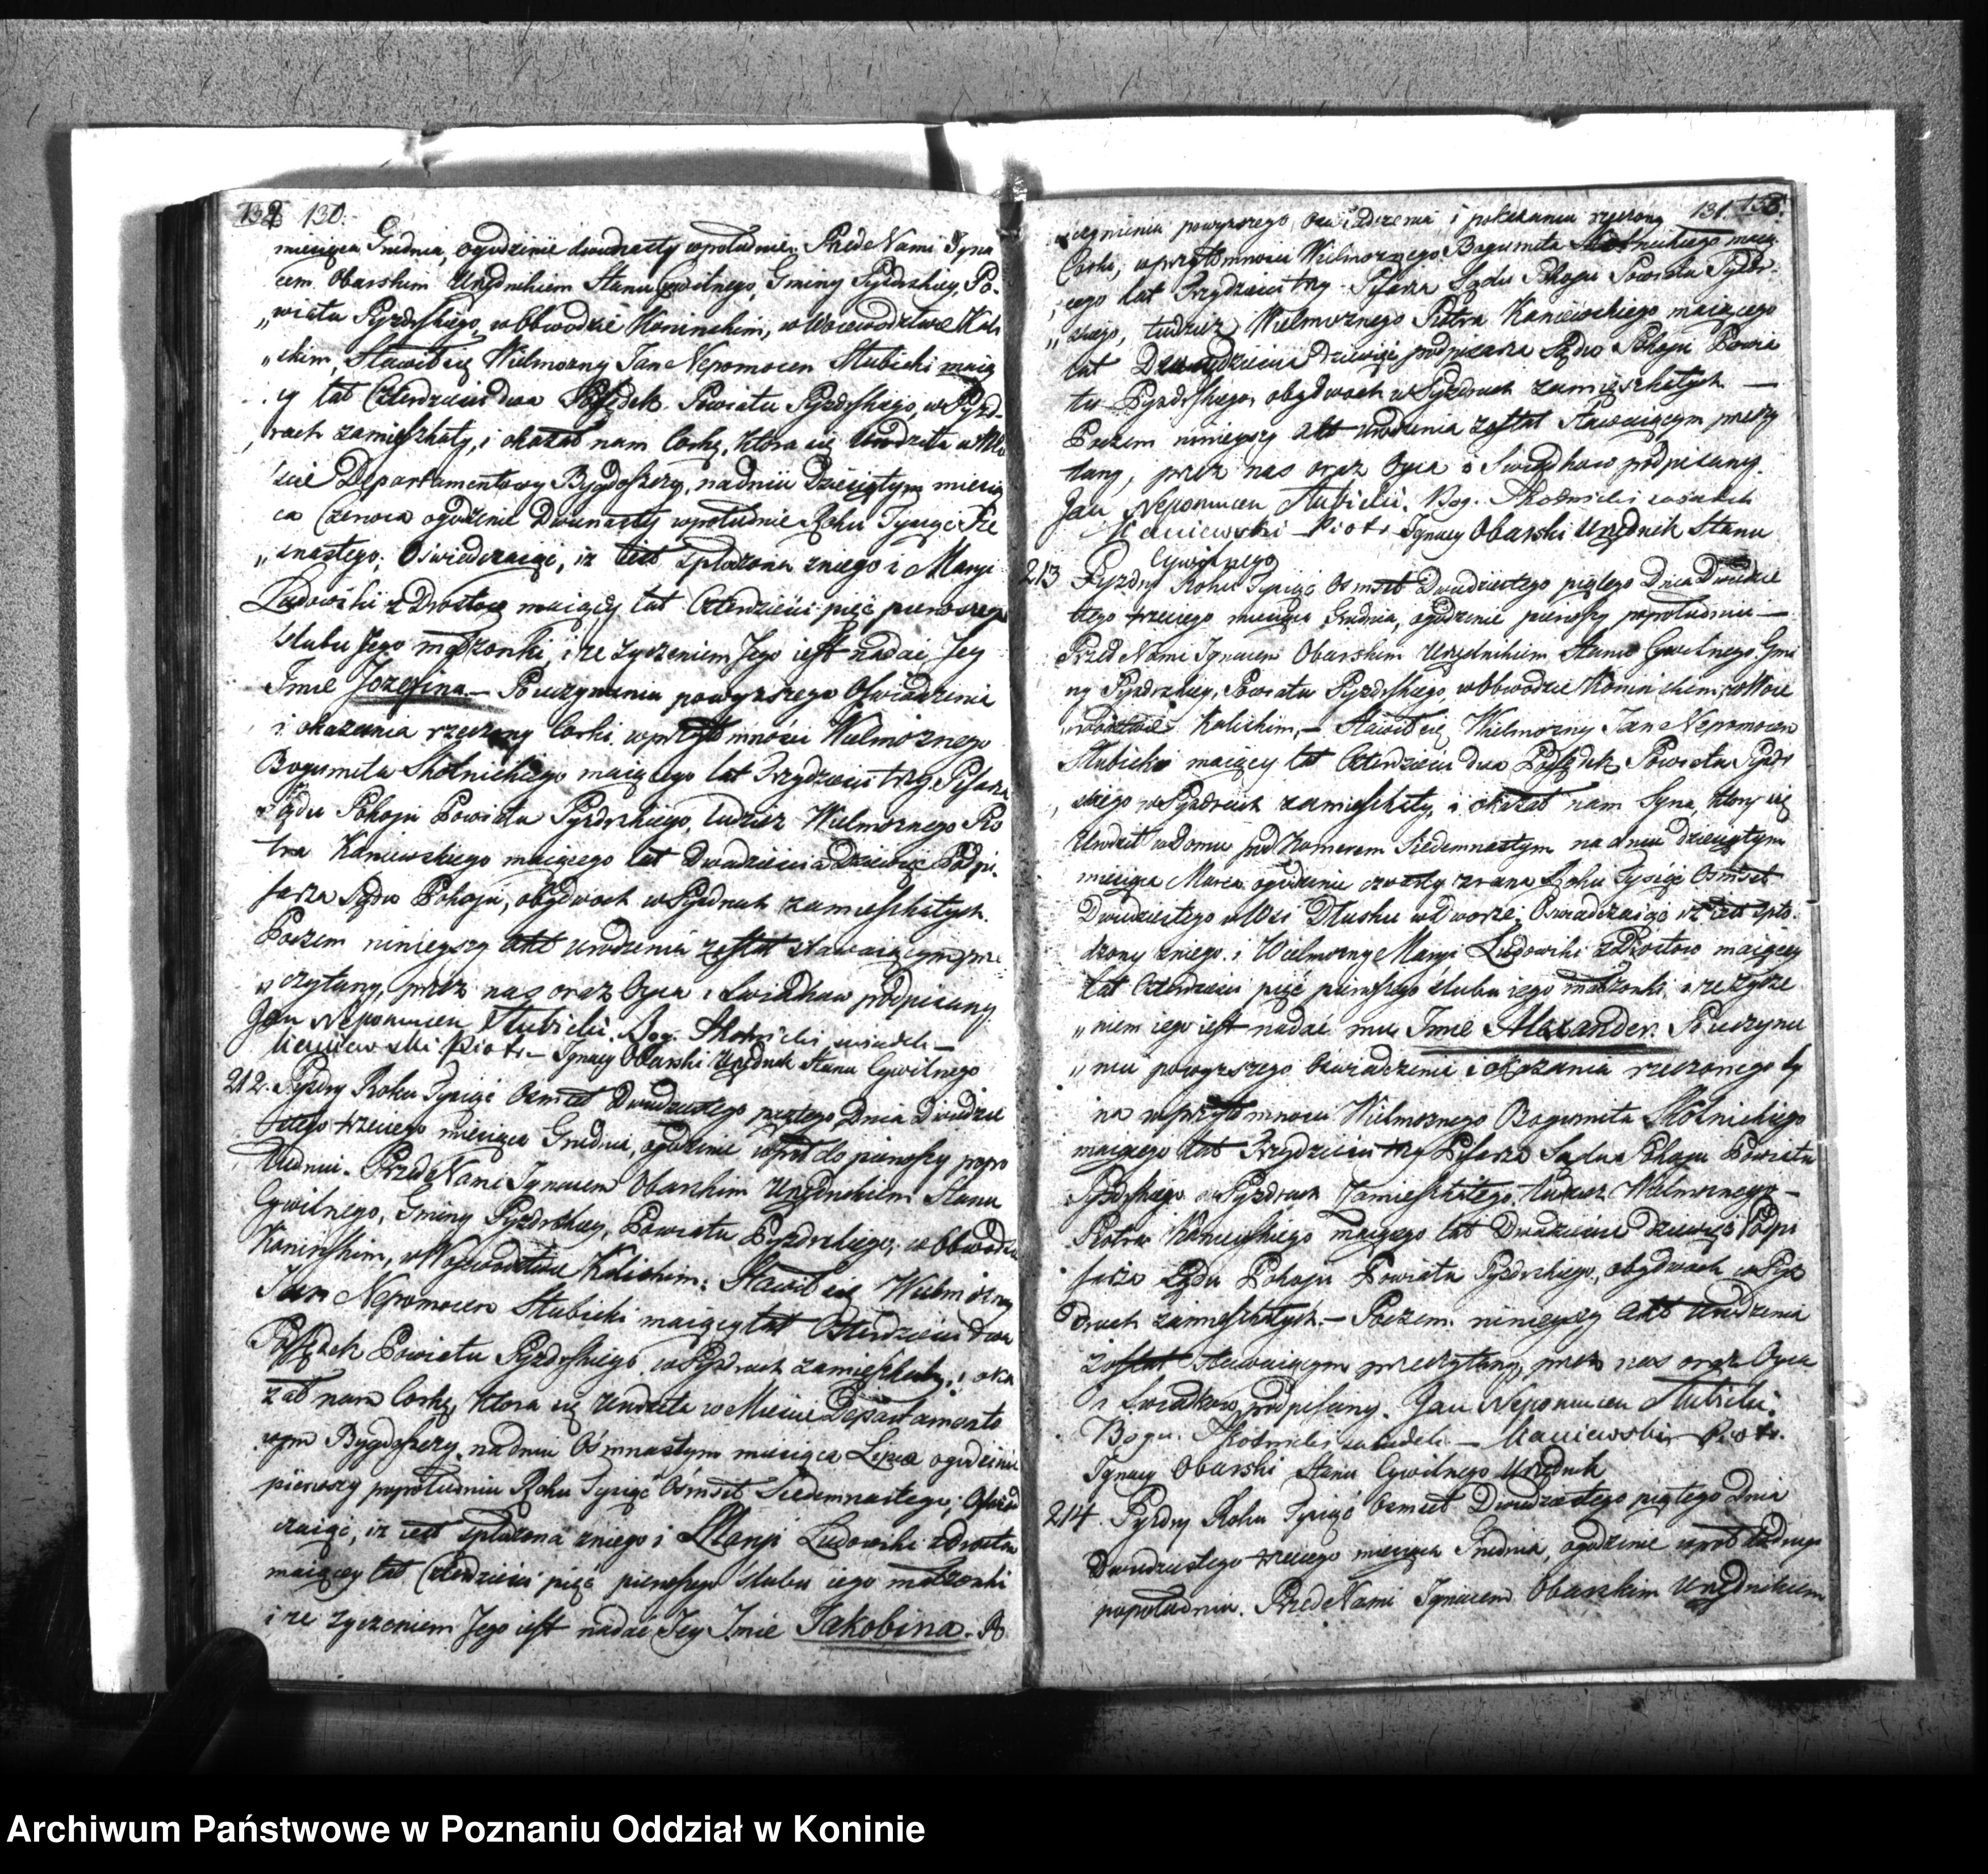 130.
miesiąca Grudnia, ogodzinie dwunasty wpołudnie. Przed Nami Igna
cem Obarskim Urzędnikiem Stanu Cywilnego, Gminy Pyzdrskiey, Po-
„wiatu Pyzdrskiego, w Obwodzie Koninskim, w Woiewodztwie Kali
„skim, Stawił się Wielmozny Jan Nepomocen Słubicki maią
cy lat Czterdzieści dwa Podsędek Powiatu Pyzdrskiego, w Pyzd-
rach zamieszkały, i okazał nam Corkę, ktora się Urodziła w Mie
ście Departamentowy Bydgoszczy, nadniu Dziesiątym miesią
ca Czerwca ogodzinie Dwunasty wpołudnie Roku Tysiąc
„snastego; Oświadczaiąc, iz iest spłodzona zniego i Maryi
Ludowiki z Drostow maiącey lat Czterdzieści pięć pierwszego
ślubu Jego małzonki, i ze zyczeniem Jego iest nadać Jey
Imie Jozefina — Po uczynieniu powyzszego Oświadczenia
i okazania rzeczony Corki wprzytomności Wielmoznego
Bogumiła Skotnickiego maiącego lat Trzydzieści trzy Pisarza
Sądu Pokoju Powiatu Pyzdrskiego, tudziez Wielmoznego Pio
tra Kaniewskiego maiącego lat Dwadzieścia Dziewięć Podpi-
sarza Sądu Pokoju, obydwoch w Pyzdrach zamieszkałych.
Poczem nieniejszy Akt urodzenia został stawaiącym prze
„czytany, przez nas oraz Oyca i Swiadkow podpisany.
Jan Nepomucen Słubicki. Bog. Skotnicki swiadek —
Kaniewski Piotr — Ignacy Obarski Urzędnik Stanu Cywilnego
212. Pyzdry Roku Tysiąc Osmset Dwudziestego piątego Dnia Dwudzie
stego trzeciego miesiąca Grudnia, ogodzinie wpół do pierwszy popo
łudniu. Przed Nami Ignacem Obarskim Urzędnikiem Stanu
Cywilnego, Gminy Pyzdrskiey, Powiatu Pyzdrskiego, w Obwodzie
Koninskim, w Woiewodztwie Kaliskim: Stawił się Wielmozny
Jan Nepomocen Słubicki maiący lat Czterdzieści dwa
Podsędek Powiatu Pyzdrskiego w Pyzdrach zamieszkały, i oka
zał nam Corkę, ktora się Urodziła w Mieście Departamento
wym Bydgoszczy nadniu Osmnastym miesiąca Lipca ogodzinie
pierwszy popołudniu Roku Tysiąc Osmset Siedemnastego, Oświad
czaiąc, iz iest spłodzona zniego i Maryi Ludowiki z Drostow
maiącey lat Czterdzieści pięć pierwszego ślubu iego małzonki
i ze zyczeniem Jego iest nadać Jey Imie Jakobina. Po
131.
uczynieniu powyzszego Oswiadczenia i pokazaniu rzeczony
Corki, wprzytomności Wielmoznego Bogumiła Skotnickiego maią
„cego lat Trzydzieści trzy Pisarza Sądu Pokoju Powiatu Pyzdr-
„skiego, tudziez Wielmoznego Piotra Kaniewskiego maiącego
lat Dwadzieścia Dziewięć podpisarza Sądu Pokoju Powia
tu Pyzdrskiego, obydwoch w Pyzdrach zamieszkałych —
Poczem nieniejszy Akt urodzenia został Stawaiącym przeczy
tany, przez nas oraz Oyca i Swiadkow podpisany.
Jan Nepomucen Słubicki. Bog. Skotnicki swiadek
Kaniewski — Piotr Ignacy Obarski Urzędnik Stanu
Cywilnego
213 Pyzdry Roku Tysiąc Osmset Dwudziestego piątego Dnia Dwudzie
stego trzeciego miesiąca Grudnia, ogodzinie pierwszy popołudniu —
Przed Nami Ignacem Obarskim Urzędnikiem Stanu Cywilnego Gmi
ny Pyzdrskiey, Powiatu Pyzdrskiego, w Obwodzie Koninskim, w Woie
„wodztwie Kaliskim, — Stawił się, Wielmozny Jan Nepomocen
Słubicki maiący lat Czterdzieści dwa Podsędek Powiatu Pyzdr
skiego w Pyzdrach zamieszkały, i okazał nam Syna, ktory się
Urodził w Domu pod Numerem Siedemnastym na dniu dziesiątym
miesiąca Marca ogodzinie czwarty zrana Roku Tysiąc Osmset
Dwudziestego w Wsi Dłusku w Dworze; Oswiadczaiąc iz iest spło-
dzony zniego i Wielmozny Maryi Ludowiki z Drostow maiącey
lat Czterdzieści pięć pierwszego ślubu iego małzonki, i ze zycze
„niem iego iest nadać mu Imie Alexander. Po uczynie
„niu powyzszego Oswiadczenia i okazania rzeczonego Sy
na wprzytomności Wielmoznego Bogumiła Skotnickiego
maiącego lat Trzydzieści trzy Pisarza Sądu Pokoju Powiatu
Pyzdrskiego w Pyzdrach Zamieszkałego, tudziez Wielmoznego —
Piotra Kaniewskiego maiącego lat Dwadzieścia dziewięć Podpi
sarza Sądu Pokoju Powiatu Pyzdrskiego, obydwoch w Pyz
drach zamieszkałych. — Poczem nieniejszy Akt Urodzenia
został stawaiącym przeczytany, przez nas oraz Oyca
i Swiadkow podpisany. Jan Nepomucen Słubicki.
Bogu. Skotnicki swiadek — Kaniewski Piotr.
Ignacy Obarski Stanu Cywilnego Urzędnik
214. Pyzdry Roku Tysiąc Osmset Dwudziestego piątego dnia
Dwudziestego trzeciego miesiąca Grudnia, ogodzinie wpół do drugi
popołudniu. Przed Nami Ignacem Obarskim Urzędnikiem
Archiwum Państwowe w Poznaniu Oddział w Koninie